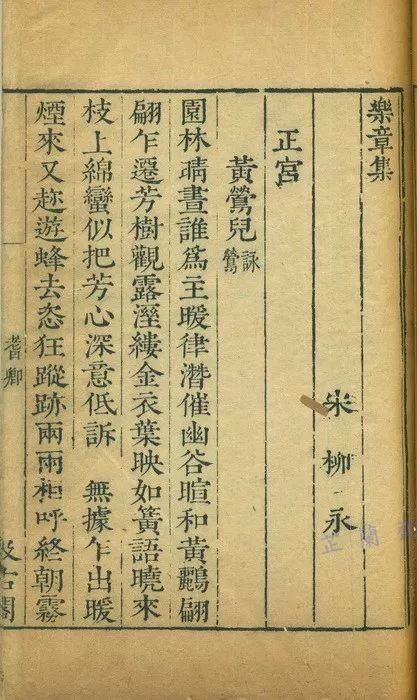 樂章集
宋柳永
正宮
黃鶯兒 詠鶯
園林晴晝誰爲主暖律潛催幽谷暄和黃鸝翩
翩乍遷芳樹觀露溼縷金衣葉映如簧語曉來
枝上綿蠻似把芳心深意低訴 無據乍出暖
煙來又趂遊蜂去恣狂蹤跡兩兩相呼終朝霧
耆卿
汲古閣
正蘭